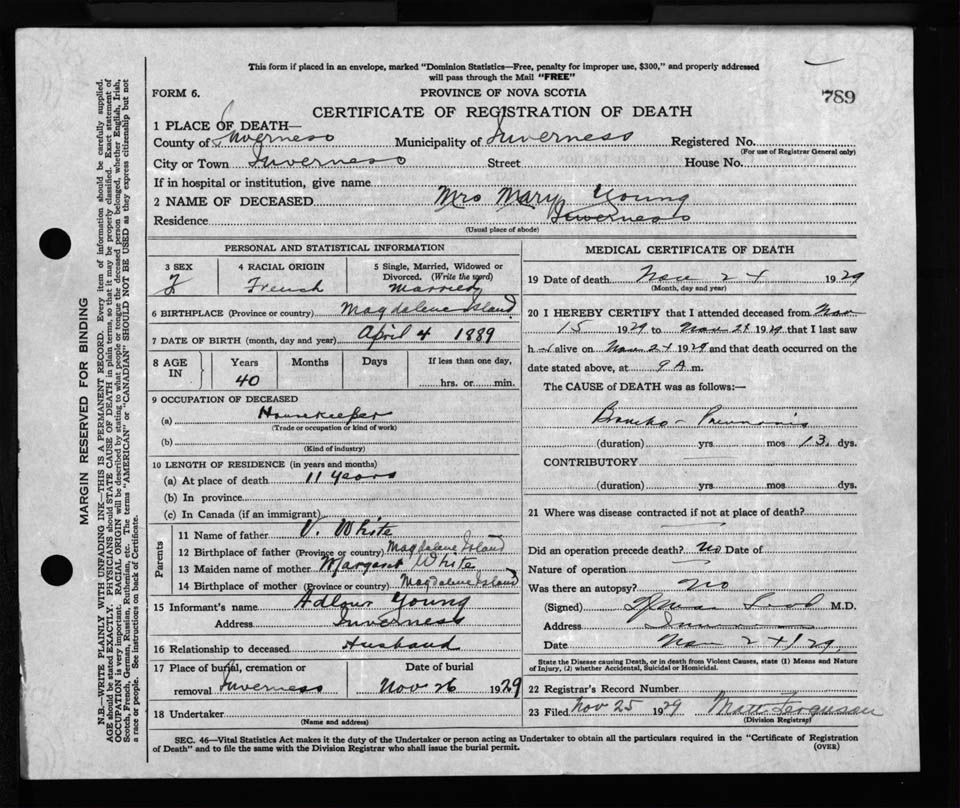 This form if placed in an envelope, marked "Dominion Statistics—Free, penalty for improper use, $300," and properly addressed
will pass through the Mail "FREE"
FORM 6.
PROVINCE OF NOVA SCOTIA
789
CERTIFICATE OF REGISTRATION OF DEATH
1 PLACE OF DEATH—
County of Inverness Municipality of Inverness Registered No.
(For use of Registrar General only)
City or Town Inverness Street House No.
If in hospital or institution, give name
2 NAME OF DECEASED Mrs Mary Young
Residence Inverness
(Usual place of abode)
PERSONAL AND STATISTICAL INFORMATION
3 SEX 4 RACIAL ORIGIN 5 Single, Married, Widowed or
Divorced. (Write the word)
F French Married
6 BIRTHPLACE (Province or country) Magdalene Island
7 DATE OF BIRTH (month, day and year) April 4 1889
8 AGE IN Years Months Days If less than one day,
40 hrs. or min.
9 OCCUPATION OF DECEASED
(a) Housekeeper
(Trade or occupation or kind of work)
(b)
(Kind of industry)
10 LENGTH OF RESIDENCE (in years and months)
(a) At place of death 11 years
(b) In province
(c) In Canada (if an immigrant)
Parents
11 Name of father V. White
12 Birthplace of father (Province or country) Magdalene Island
13 Maiden name of mother Margaret White
14 Birthplace of mother (Province or country) Magdalene Island
15 Informant's name Young
Address Inverness
16 Relationship to deceased Husband
17 Place of burial, cremation or Date of burial
removal Inverness Nov 26 1929
18 Undertaker
(Name and address)
MEDICAL CERTIFICATE OF DEATH
19 Date of death Nov 24 1929
(Month, day and year)
20 I HEREBY CERTIFY that I attended deceased from Nov
15 1929 to Nov 24 1929 that I last saw
h alive on Nov 24 1929 and that death occurred on the
date stated above, at 9 A m.
The CAUSE of DEATH was as follows:—
Broncho-Pneumonia
(duration) yrs mos 13 dys.
CONTRIBUTORY
(duration) yrs. mos. dys.
21 Where was disease contracted if not at place of death?
Did an operation precede death? no Date of
Nature of operation
Was there an autopsy? no
(Signed) M.D.
Address
Date Nov 24 1929
State the Disease causing Death, or in death from Violent Causes, state (1) Means and Nature
of Injury, (2) whether Accidental, Suicidal or Homicidal.
22 Registrar's Record Number
23 Filed Nov 25 1929 Matt Ferguson
(Division Registrar)
SEC. 46—Vital Statistics Act makes it the duty of the Undertaker or person acting as Undertaker to obtain all the particulars required in the "Certificate of Registration
of Death" and to file the same with the Division Registrar who shall issue the burial permit.
(OVER)
MARGIN RESERVED FOR BINDING
N.B.—WRITE PLAINLY WITH UNFADING INK—THIS IS A PERMANENT RECORD. Every item of information should be carefully supplied.
AGE should be stated EXACTLY. PHYSICIANS should STATE CAUSE OF DEATH in plain terms, so that it may be properly classified. Exact statement of
OCCUPATION is very important. RACIAL ORIGIN will be described by stating to what people or tongue the deceased person belonged, whether English, Irish,
Scotch, French, German, Russian, Ruthenian, etc. The terms "AMERICAN" or "CANADIAN" SHOULD NOT BE USED as they express citizenship but not
a race or people. See instructions on back of Certificate.